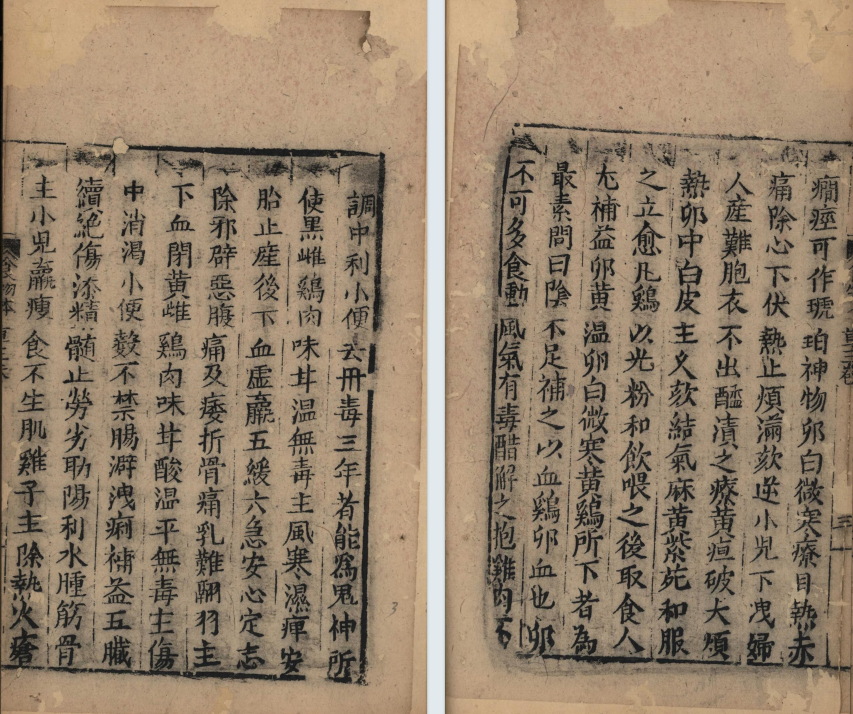 調中利小便去丹毒三年者能爲鬼神所
使黑雌鷄肉味甘温無毒主風寒濕痺安
胎止産後下血虛羸五緩六急安心定志
除邪辟惡腹痛及痿折骨痛乳難翮羽主
下血閉黄雌鷄肉味甘酸温平無毒主傷
中消渴小便數不禁腸澼洩痢補益五臟
續絶傷添精髓止勞劣助陽利水腫筋骨
主小兒羸瘦食不生肌雞子主除熱火瘡
食物本草三卷
3
癇痙可作琥珀神物卵白微寒療目熱赤
痛除心下伏熱止煩滿欬逆小兒下洩婦
人産難胞衣不出醯漬之療黄疸破大煩
熱卵中白皮主久欬結氣麻黄紫苑和服
之立愈凡鷄以光粉和飲喂之後取食人
尤補益卵黄温卵白微寒黄鷄所下者為
最素問曰陰不足補之以血鷄卵血也卵
不可多食動風氣有毒醋解之抱雞肉不